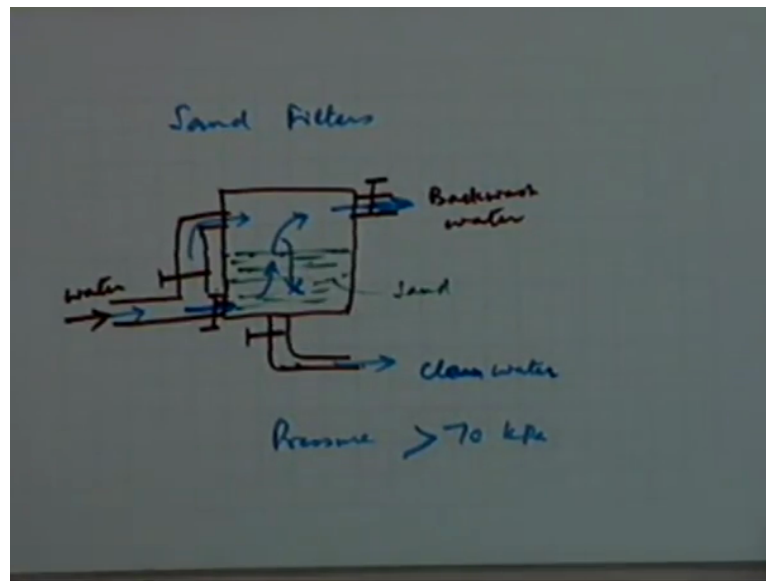 Sand Filters
Backwash
water
water
Sand
Clean water
Pressure > 70 kPa